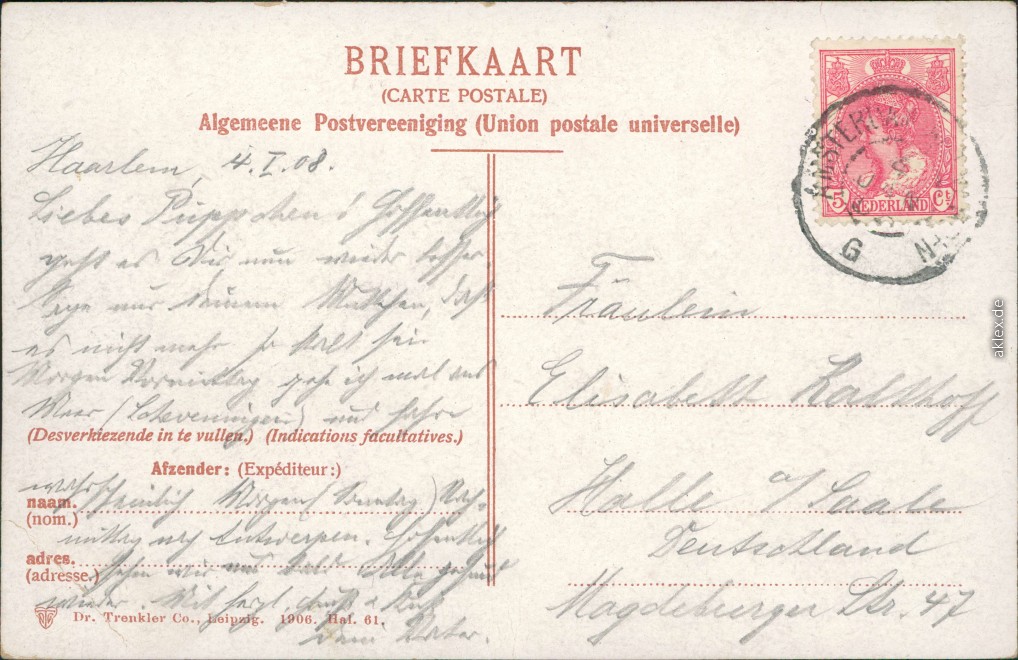 BRIEFKAART
(CARTE POSTALE)
Algemeene Postvereeniging (Union postale universelle)
5 NEDERLAND Ct
AMSTERDAM
Haarlem, 4.I.08.
Liebes Püppchen! Hoffentlich
geht es Dir nun wieder besser.
Sage nur Deinem, daß
es nicht mehr so kalt sei
Morgen Vormittag gehe ich mal ans
Meer (Scheveningen) und fahre
(Desverkiezende in te vullen.) (Indications facultatives.)
Afzender: (Expéditeur:)
wahr-
scheinlich Morgen (Sonntag) Nach-
naam.
(nom.)
mittag nach Antwerpen. Hoffentlich
adres.
(adresse.)
sehen wir uns bald Alle gesund
wieder. Mit herzl. Gruß u. Kuß
Dr. Trenkler Co., Leipzig. 1906. Hal. 61.
Dein Vater.
Fräulein
Elisabeth Kalthoff
Halle a/Saale
Deutschland
Magdeburger Str. 47
aklex.de